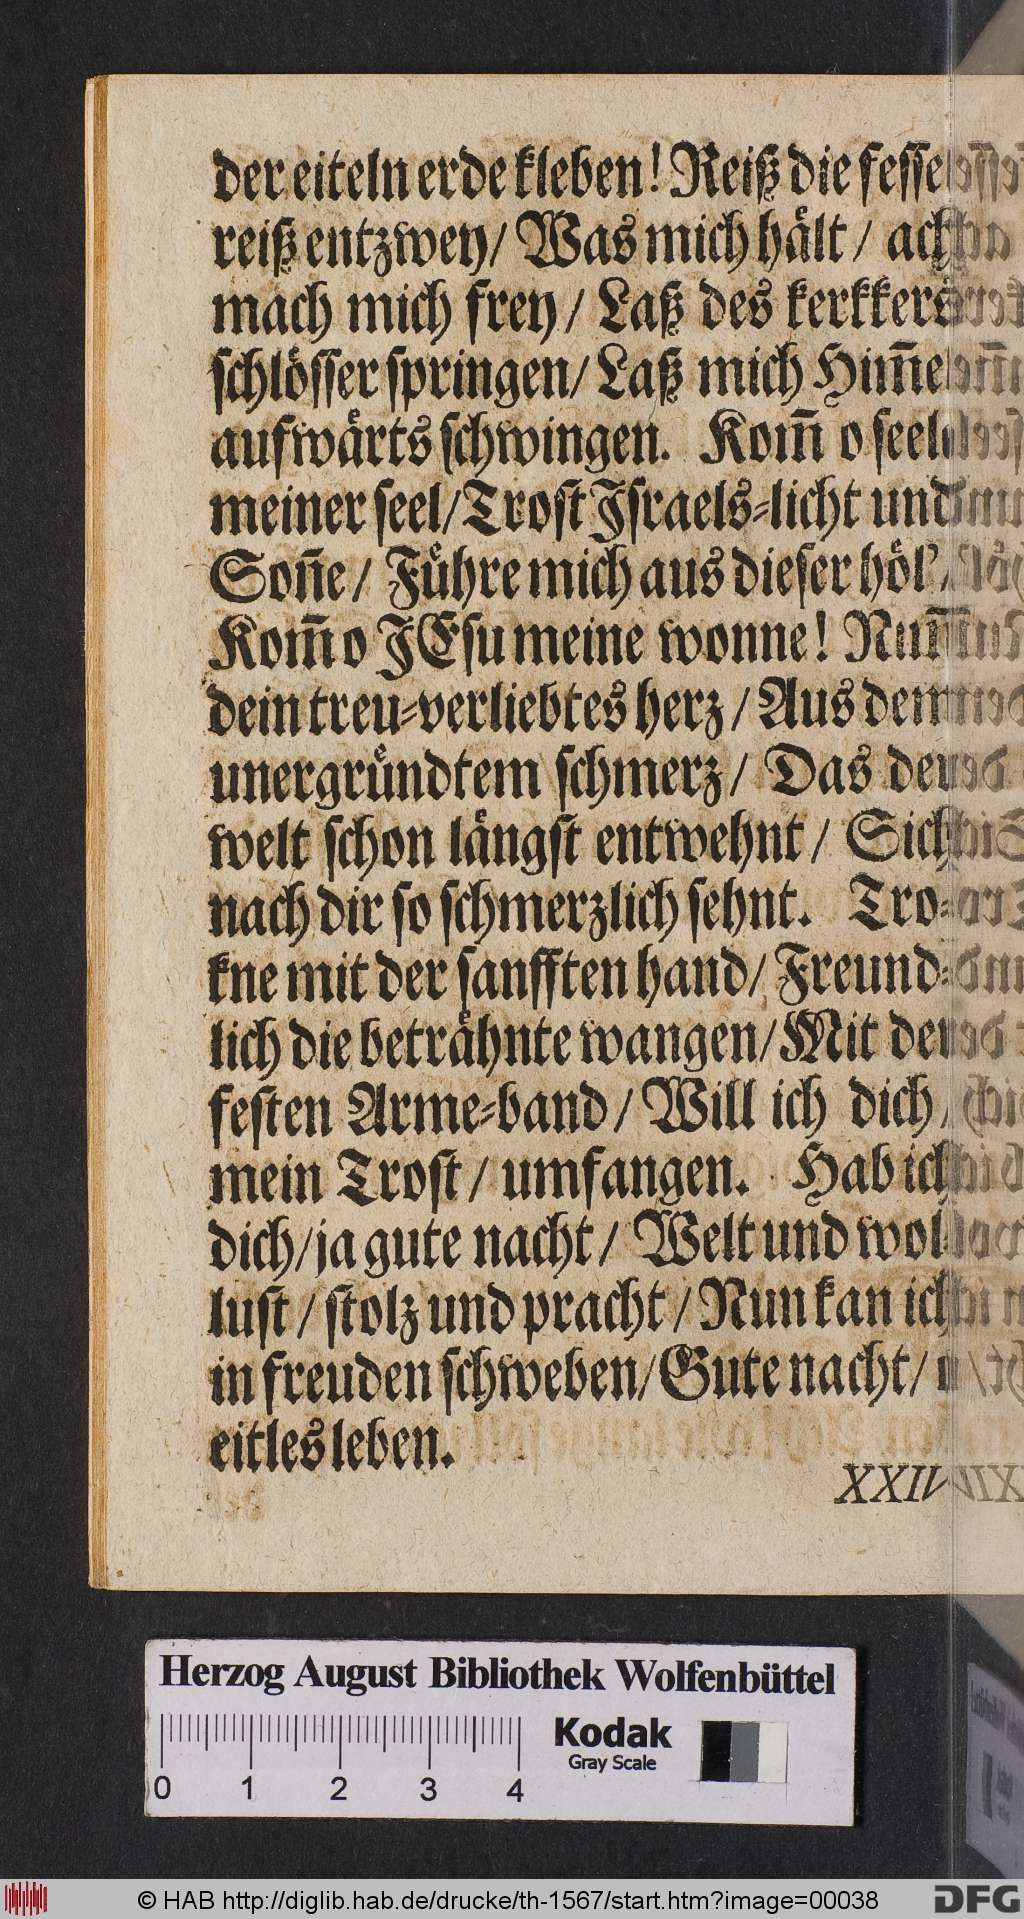 der eiteln erde kleben! Reiß die fessel
reiß entzwey/ Was mich hält/ ach
mach mich frey/ Laß des kerkkers
schlösser springen/ Laß mich Him̄el
aufwärts schwingen. Kom̄ o seel
meiner seel/ Trost Israels-licht und
Son̄e/ Führe mich aus dieser höl'/
Kom̄ o JEsu meine wonne! Nim̄
dein treu-verliebtes herz/ Aus dem
unergründtem schmerz/ Das der
welt schon längst entwehnt/ Sich
nach dir so schmerzlich sehnt. Tro-
kne mit der sanfften hand/ Freund-
lich die beträhnte wangen/ Mit der
festen Arme-band/ Will ich dich/
mein Trost/ umfangen. Hab ich
dich/ ja gute nacht/ Welt und wol-
lust/ stolz und pracht/ Nun kan ich
in freuden schweben/ Gute nacht/ o
eitles leben.
XXIV
Herzog August Bibliothek Wolfenbüttel
Kodak
Gray Scale
0 1 2 3 4
© HAB http://diglib.hab.de/drucke/th-1567/start.htm?image=00038
DFG